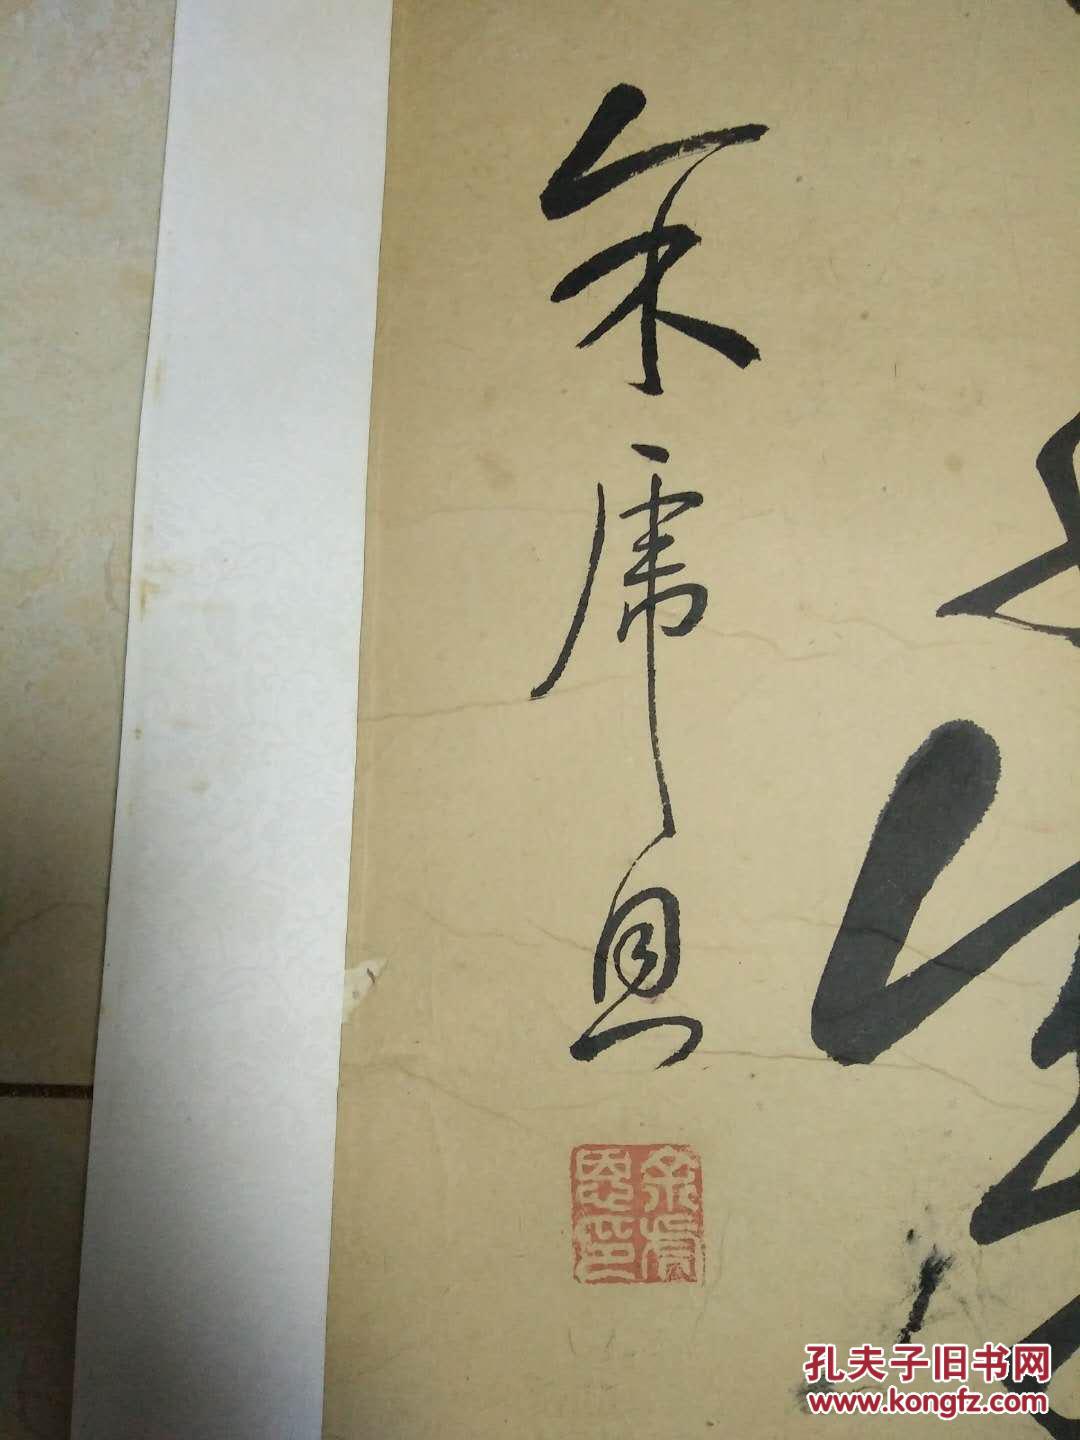 余虎恩
余虎恩印
孔夫子旧书网
www.kongfz.com